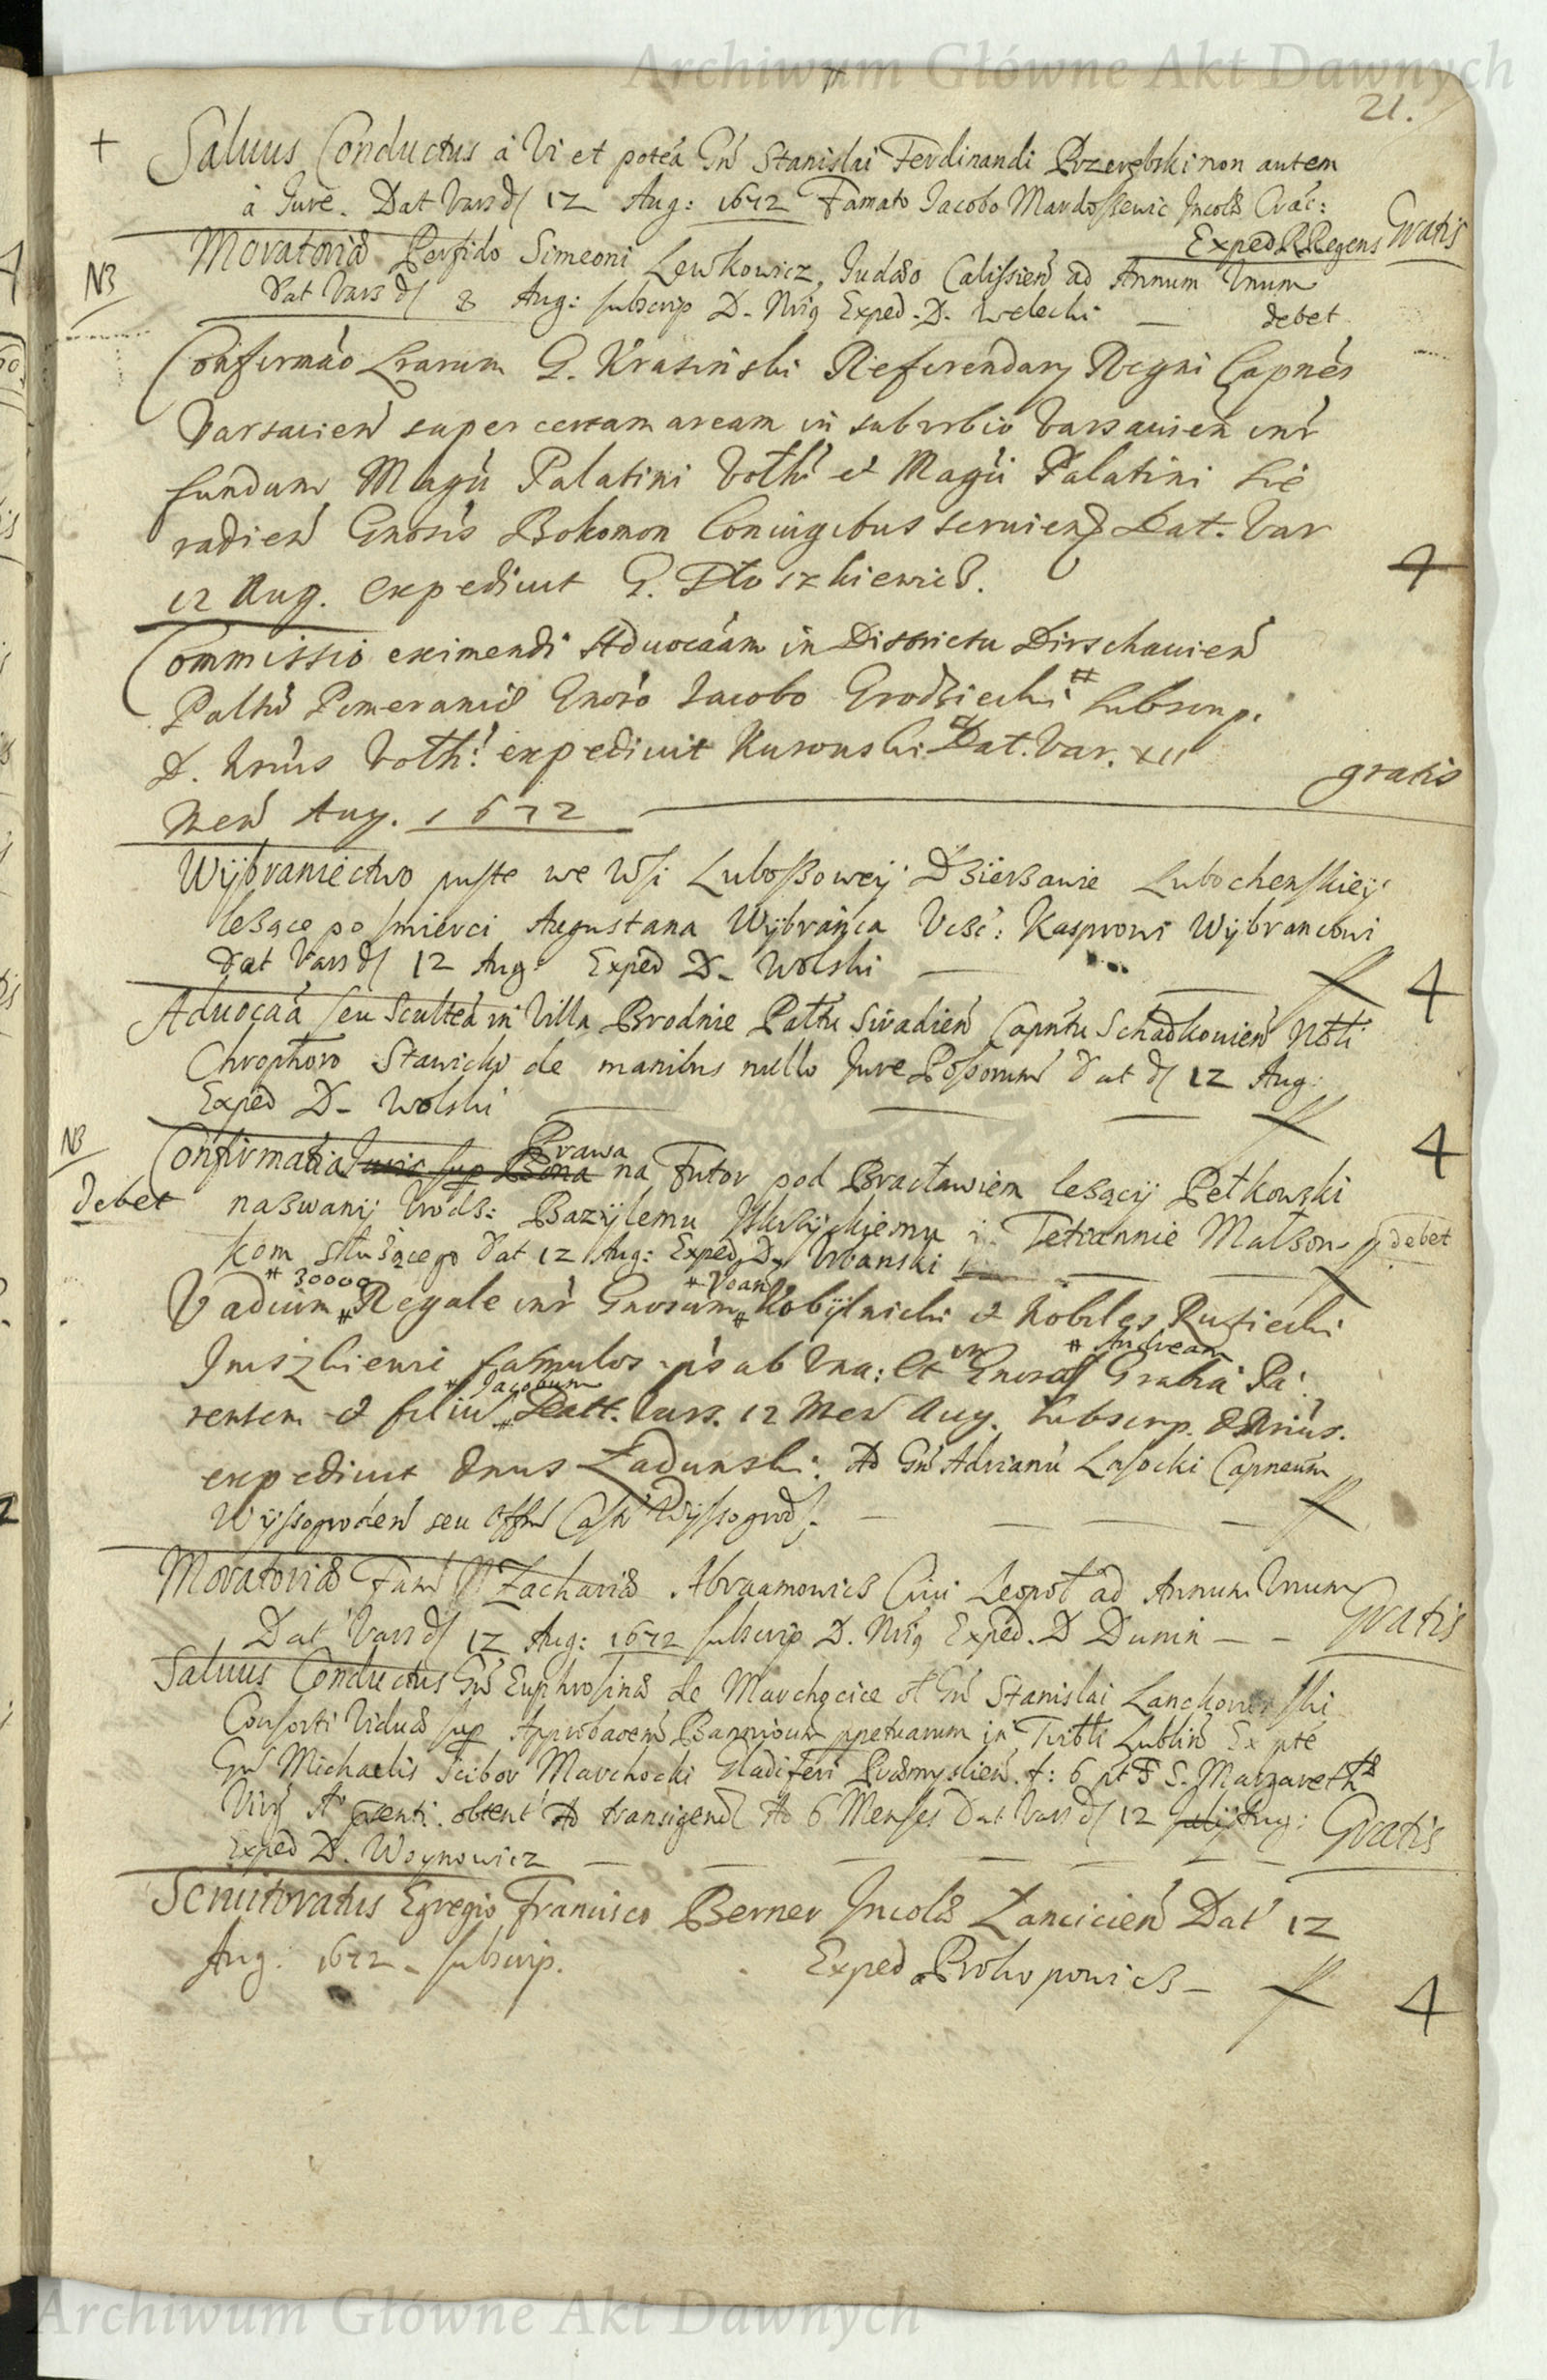 Archiwum Główne Akt Dawnych
21.
+ Salvus Conductus à Vi et potea Gn̄ Stanislai Ferdinandi Przerębski non autem
à Jure. Dat Vars d 12 Aug: 1672 Famato Jacobo Mardossewic Incolæ Crac:
Exped R Regens Gratis
NB Moratoriæ Perfido Simeoni Lewkowicz, Judæo Calissień ad Annum Unum
Dat Vars d 8 Aug: subscrip D. Nrig Exped. D. Welecki — debet
Confirmáo Lrarum G. Krasiński Referendarÿ Regni Capnei
Varsavień super certam aream in suburbio Varsavień inr
fundum Magci Palatini Volhi et Magci Palatini Sie
radień Gnosis Bokomon Coniugibus serviend Dat. Var
12 Aug. expedivit G. Dłoszkiewicz. 4
Commissio eximendi Advocaam in Districtu Dirschavień
Paltus Pomeraniæ Gnoso Jacobo Grodziecki # subscrip.
D. Nrius Volhi expedivit Kurowski Dat. Var. XII
Men Aug. 1672 gratis
Wÿbraniectwo puste we Wsi Lubossoweÿ Dzierzawie Lubochenskieÿ
lezące po smierci Augustana Wÿbrańca Ucsc: Kasprowi Wÿbrancowi
Dat Vars d 12 Aug: Exped D. Wolski — 4
Advocaa seu Scultea in Villa Brodnie Paltu Siradień Capntu Schadkovień Nobli
Chrophoro Stawicki de manibus nullo Jure Possorum Dat d 12 Aug:
Exped D. Wolski 4
NB Confirmatia Juris sup Bona Prawa na Futor pod Bracławiem lezącÿ Petkowski
debet nazwanÿ Urodz: Bazÿlemu i Tetiannie Małzon- debet
kom słuzącego Dat 12 Aug: Exped D. Urbanski
# 30000 # Joan
Vadium # Regale inr Gnosum # Kobÿlnicki et Nobiles Rusiecki
# Andream
Juiszkiewi famulos ips ab una: et Gnosos Grabia Pa:
# Jacobum
rentem et filium # Datt. Vars. 12 Men Aug. subscrip. D Nrius.
expedivit Dnus Ładunski. Ad Gn̄ Adrianū Lasocki Capneum
Wÿssogroden seu Offm Cast Wÿssogrod.
Moratoriæ Fam Zachariæ Abraamowicz Civi Leopol ad Annum Unum
Dat Vars d 12 Aug: 1672 subscrip D. Nrig Exped. D Dunin — — Gratis
Salvus Conductus Gn̄ Euphrosinæ de Marchocice ol Gn̄ Stanislai Lanckoronski
Consorti Viduæ sup Approbaoem Bannioum ppetuarum in Tribli Lublin Ex pte
Gn̄ Michaelis Scibor Marchocki Gladiferi Præmyslień. f: 6 pt F S. Margarethæ
Virg Ao obtent Ad transigend Ad 6 Menses Dat Vars d 12 Julij Aug: Gratis
Exped D. Woynowicz
Servitoratus Egregio Francisco Berner Incolæ Lancicień Dat 12
Aug: 1672 - subscrip. Exped Prokopowicz — 4
Archiwum Główne Akt Dawnych